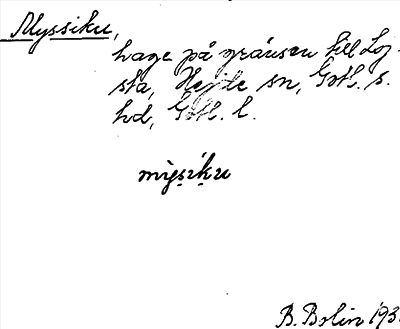 Myssiku,
hage på gränsen till Loj-
sta, Hejde sn, Gotl. s.
hd, Gotl. l.
mỳsi̥ku
B. Bolin 193